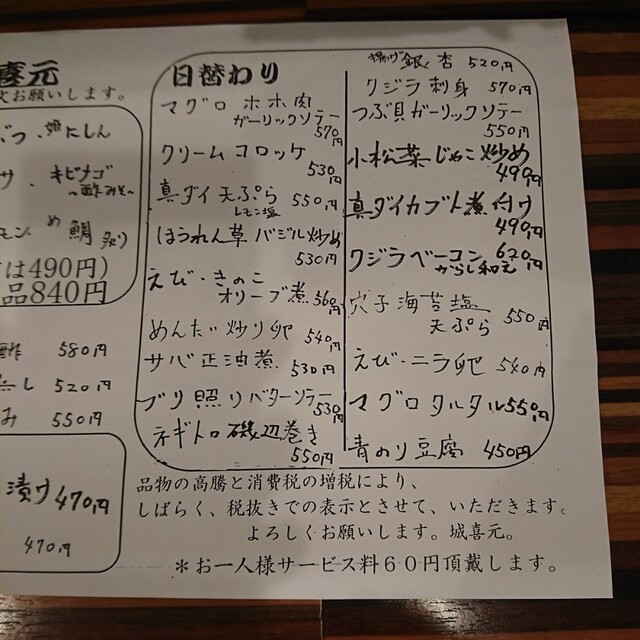 喜元
文お願いします。
ぶつ、姫にしん
サ、キビナゴ
〜酢みそ〜
鯛
は490円)
品840円
酢 580円
し 520円
み 550円
漬け 470円
470円
日替わり
マグロ ホホ肉
ガーリックソテー
570円
クリームコロッケ
530円
真ダイ天ぷら
レモン塩 550円
ほうれん草バジル炒め
530円
えび・きのこ
オリーブ煮 560円
めんたい炒り卵 540円
サバ正油煮 530円
ブリ照りバターソテー
530円
ネギトロ磯辺巻き
550円
揚げ銀杏 520円
クジラ刺身 570円
つぶ貝ガーリックソテー
550円
小松菜じゃこ炒め
490円
真ダイカブト煮付け
490円
クジラベーコン 620円
からし和え
穴子海苔塩
天ぷら 550円
えび・ニラ卵 540円
マグロタルタル 550円
青のり豆腐 450円
品物の高騰と消費税の増税により、
しばらく、税抜きでの表示とさせて、いただきます。
よろしくお願いします。城喜元。
*お一人様サービス料60円頂戴します。